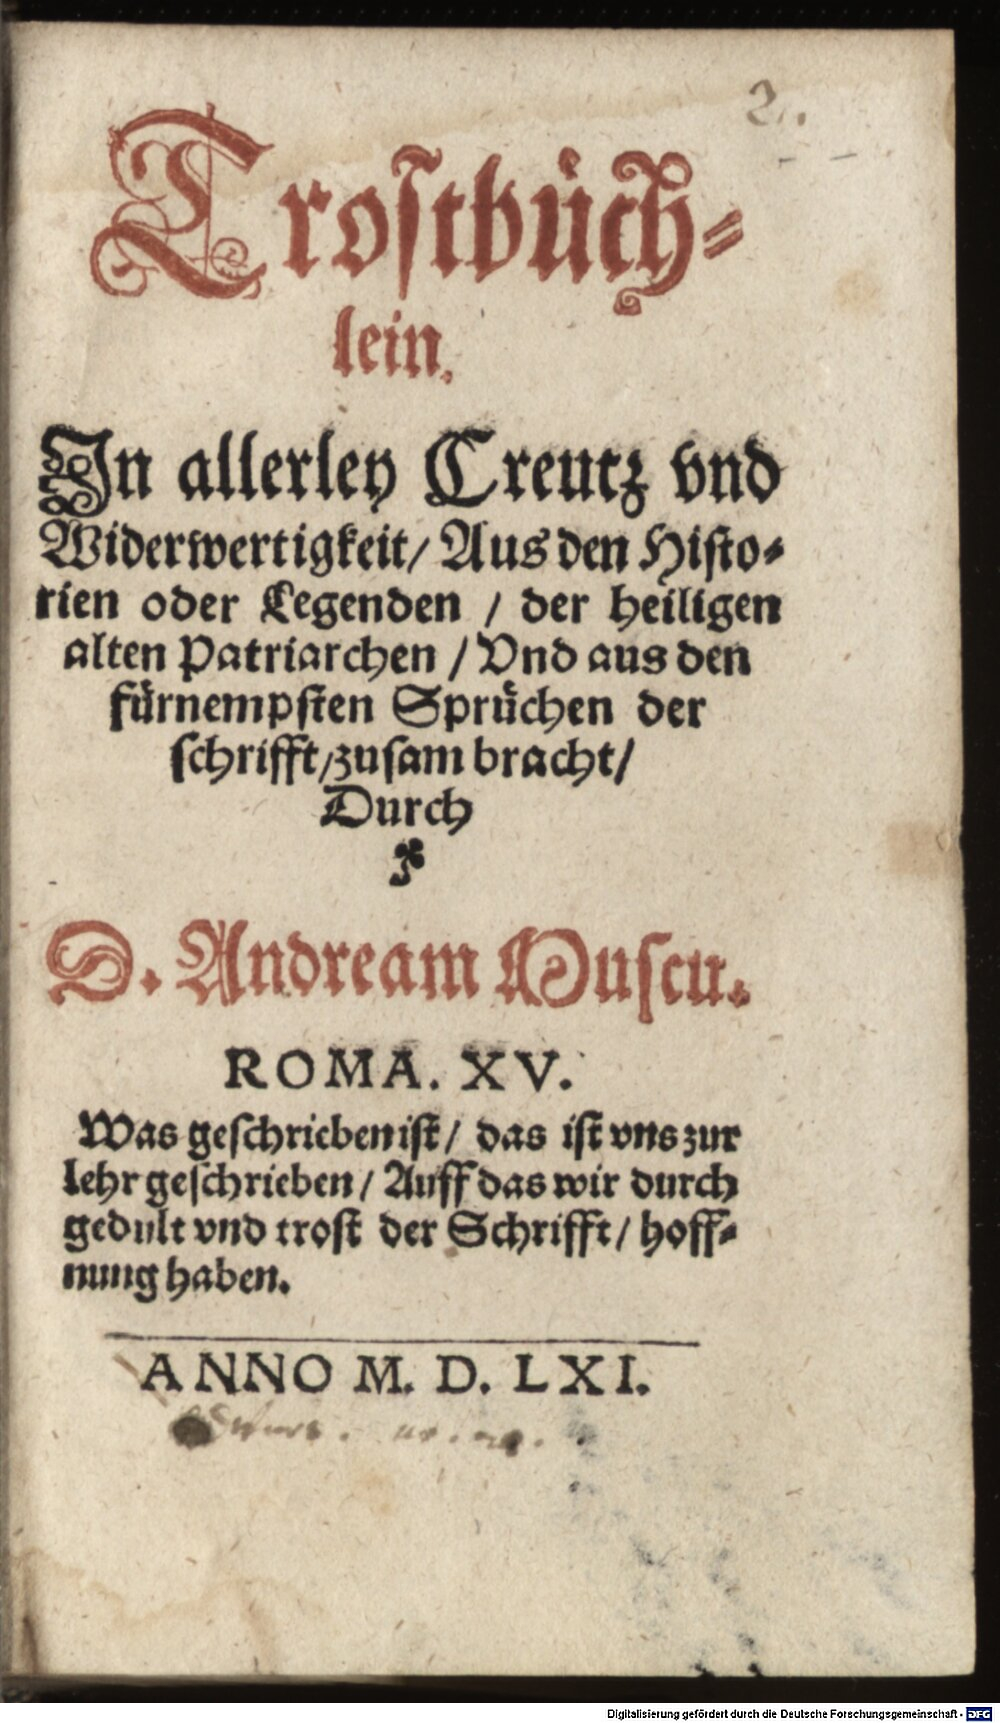 2.
Trostbüch-
lein.
In allerley Creutz vnd
Widerwertigkeit/ Aus den Histo-
rien oder Legenden / der heiligen
alten Patriarchen / Vnd aus den
fürnempsten Sprüchen der
schrifft/zusam bracht/
Durch
D. Andream Muscu.
ROMA. XV.
Was geschrieben ist/ das ist vns zur
lehr geschrieben/ Auff das wir durch
gedult vnd trost der Schrifft/ hoff-
nung haben.
ANNO M. D. LXI.
Digitalisierung gefördert durch die Deutsche Forschungsgemeinschaft - DFG